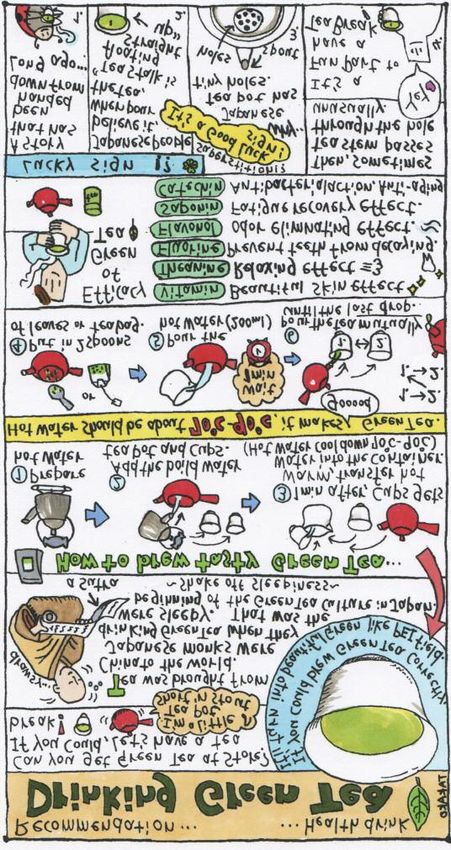 Recommendation... ...Health drink
Drinking Green Tea
Can you get Green Tea at Store?
If you could, Let's have a tea
break!
I'm a little
Tea pot
short n' stout
If you could brew Green Tea correctly,
it'll turn into beautiful Green like
Tea was brought from
China to the world.
Japanese monks were
drinking Green Tea when they
were sleepy. That was the
beginning of the Green Tea culture in Japan
~Shake off sleepiness~
drowsy...
a Sutra
How to brew tasty Green Tea...
① Prepare
hot water
② Add the boild water
tea Pot and cups.
③ 1 min after cups gets
warm, transfer hot
water into the container.
(Hot water cool down 70°c-90°c)
Hot water should be about 70°c-90°c, it makes Green Tea
goood
④ Put in 2 spoons
of leaves or teabag.
or
⑤ Pour the
hot water (200ml)
wait
1 min
⑥ Pour the tea mutually
until the last drop.
1 2
1.→2
1.→2.
Efficacy
of
Green
Tea
Vitamin Beautiful skin effect.
Theanine Relaxing effect
Fluorine Prevent teeth from decaying.
Flavonol odor eliminating effect.
Saponin Fatigue recovery effect.
Catechin Antibacterial action, Anti-aging
Lucky Sign !?
superstition?
It's a Good Luck
Sign!
A story
that has
been
handed
down from
long ago...
1.
Japanese people
believe it
when pour
the tea,
"Tea stalk is
floating
straight
up"
2.
Why...
Japanese
Tea pot has
tiny holes.
holes
spout
3.
Then, sometimes
tea stem passes
through the hole
unusually.
It's a
Fun Part to
have a
Tea Break!
Yey
4.